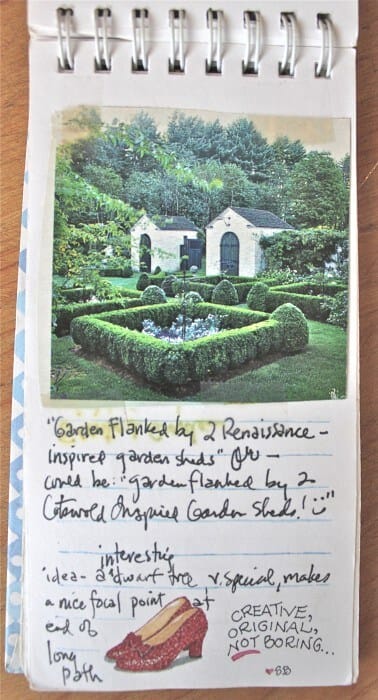 "Garden Flanked by 2 Renaissance-
inspired garden sheds" OR -
could be: "garden flanked by 2
Cotswold Inspired Garden Sheds!"
interesting
idea- a dwarf tree v. special, makes
a nice focal point at
end of
long
path
CREATIVE,
ORIGINAL,
NOT BORING...